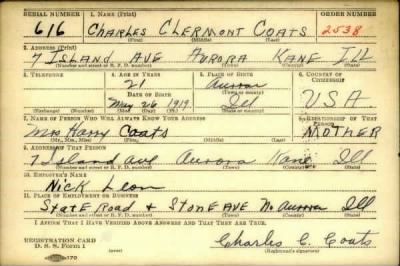 SERIAL NUMBER 1. NAME (Print) ORDER NUMBER
616 CHARLES CLERMONT COATS 2538
(First) (Middle) (Last)
2. ADDRESS (Print)
7 ISLAND AVE AURORA KANE ILL
(Number and street or R. F. D. number) (Town) (County) (State)
3. TELEPHONE 4. AGE IN YEARS 5. PLACE OF BIRTH 6. COUNTRY OF CITIZENSHIP
21 Aurora
DATE OF BIRTH (Town or county)
May 26 1919 Ill U.S.A.
(Exchange) (Number) (Mo.) (Day) (Yr.) (State or country)
7. NAME OF PERSON WHO WILL ALWAYS KNOW YOUR ADDRESS 8. RELATIONSHIP OF THAT PERSON
Mrs Harry Coats MOTHER
(Mr., Mrs., Miss) (First) (Middle) (Last)
9. ADDRESS OF THAT PERSON
7 Island ave Aurora Kane Ill
(Number and street or R. F. D. number) (Town) (County) (State)
10. EMPLOYER'S NAME
Nick Leon
11. PLACE OF EMPLOYMENT OR BUSINESS
STATE ROAD + STONE AVE No. Aurora Ill
(Number and street or R. F. D. number) (Town) (County) (State)
I AFFIRM THAT I HAVE VERIFIED ABOVE ANSWERS AND THAT THEY ARE TRUE.
REGISTRATION CARD
D. S. S. Form 1 Charles C. Coats
(Registrant's signature)